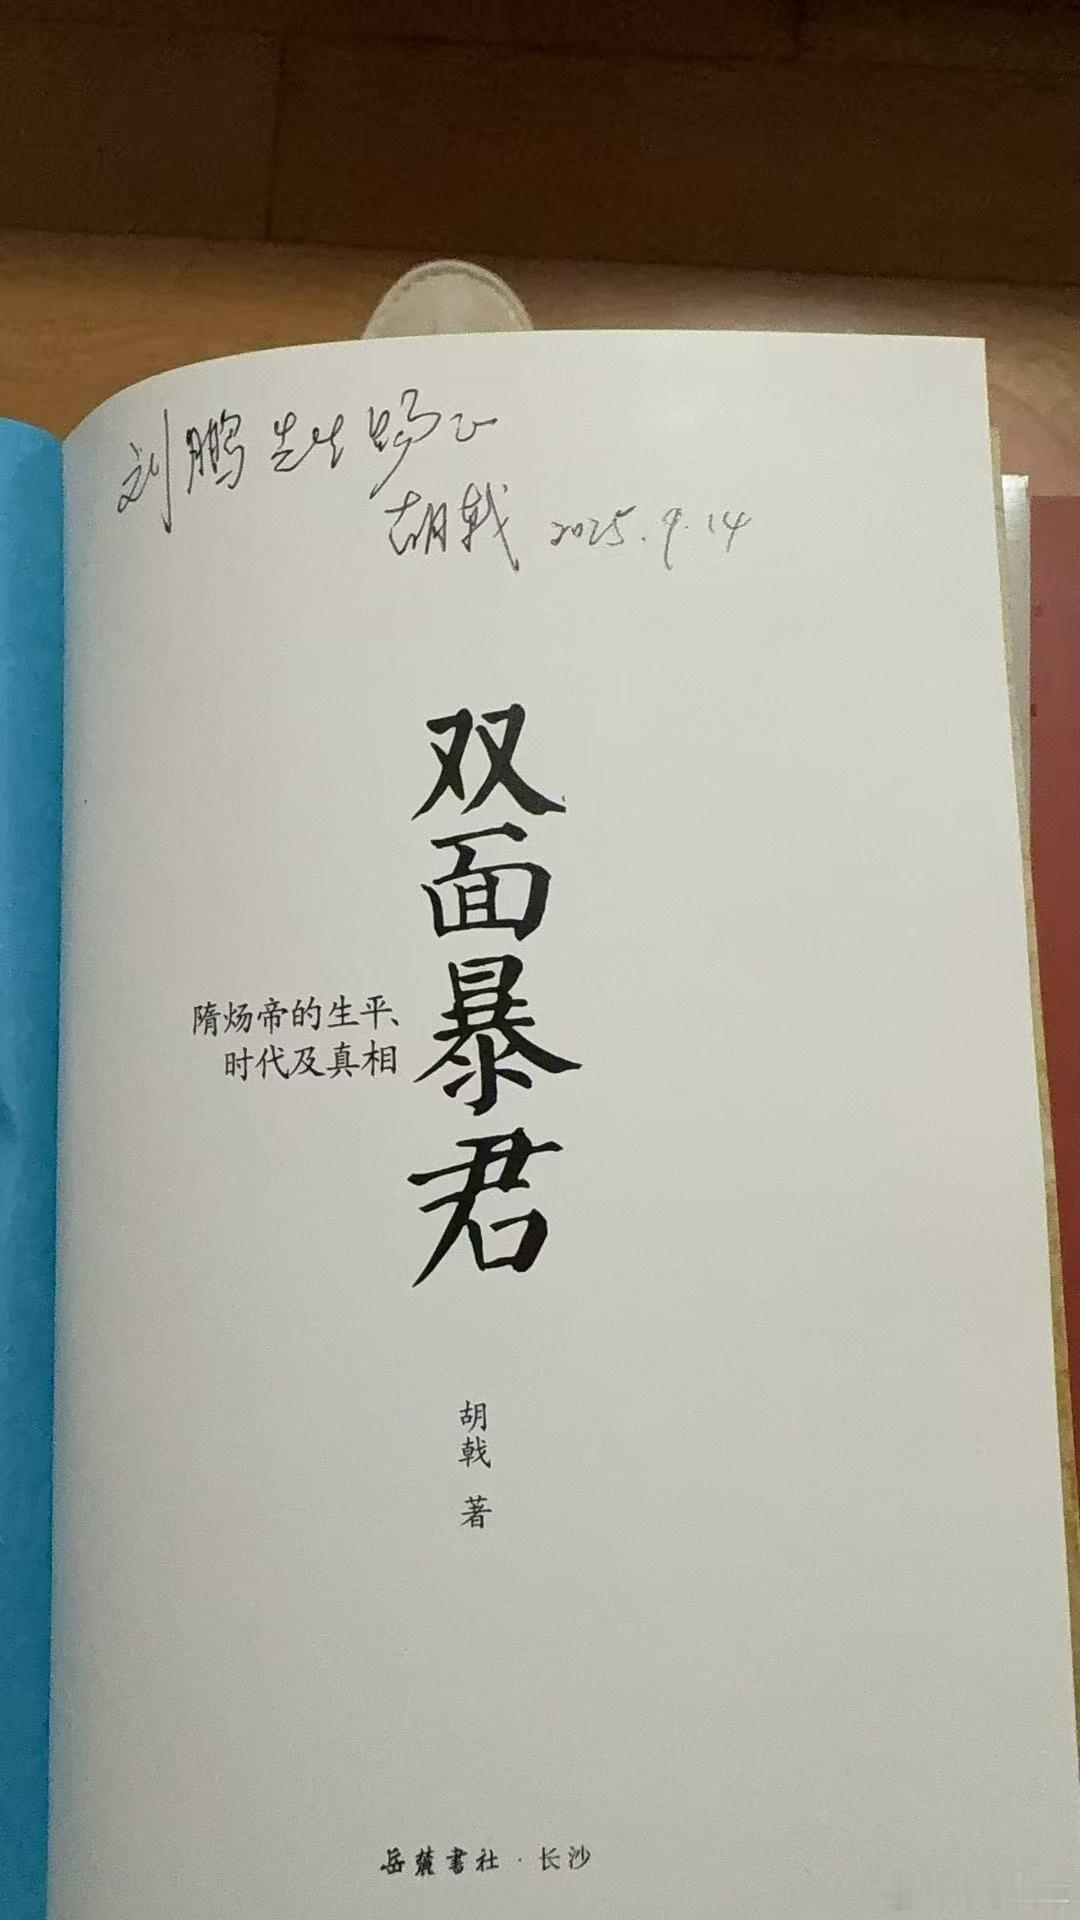 刘鹏先生赐正
胡戟 2025.9.14
双面暴君
隋炀帝的生平、
时代及真相
胡戟 著
岳麓书社·长沙